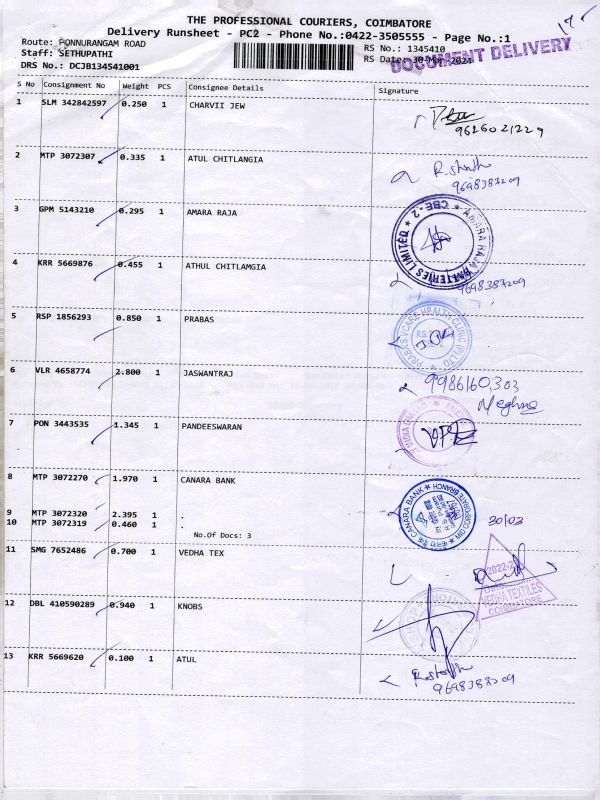 THE PROFESSIONAL COURIERS, COIMBATORE
Delivery Runsheet - PC2 - Phone No.:0422-3505555 - Page No.:1
Route: PONNURANGAM ROAD
RS No.: 1345410
Staff: SETHUPATHI
RS Date: 30-Mar-2024
DOCUMENT DELIVERY
DRS No.: DCJB134541001
S No Consignment No Weight PCS Consignee Details Signature
1 SLM 342842597 0.250 1 CHARVII JEW
9626021229
2 MTP 3072307 0.335 1 ATUL CHITLANGIA
9698387209
3 GPM 5143210 0.295 1 AMARA RAJA
AMARA RAJA BATTERIES LIMITED * CBE-2 *
4 KRR 5669876 0.455 1 ATHUL CHITLAMGIA
9698387209
5 RSP 1856293 0.850 1 PRABAS
PRABAS VCARE HEALTH CLINIC (P) LTD
6 VLR 4658774 2.800 1 JASWANTRAJ
9986160303
Meghna
7 PON 3443535 1.345 1 PANDEESWARAN
8 MTP 3072270 1.970 1 CANARA BANK
CANARA BANK
CORPORATE BRANCH
9 MTP 3072320 2.395 1 .
30/03
10 MTP 3072319 0.460 1 .
No.Of Docs: 3
11 SMG 7652486 0.700 1 VEDHA TEX
VEDHA TEXTILES
COIMBATORE
12 DBL 410590289 0.940 1 KNOBS
13 KRR 5669620 0.100 1 ATUL
9698387209